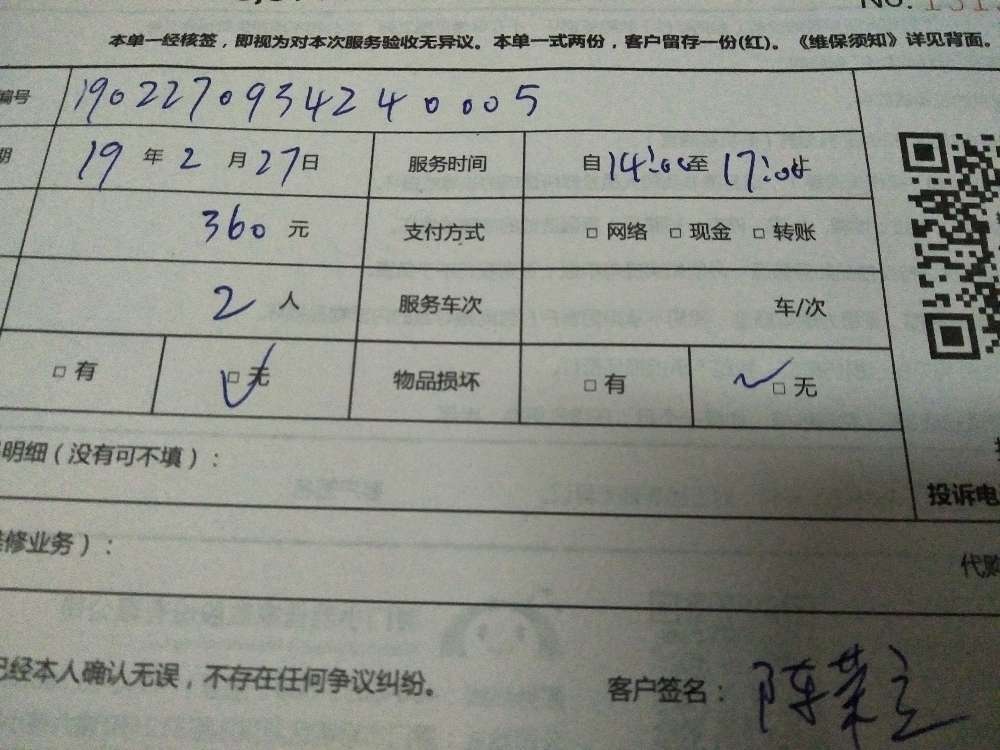 No. 131
本单一经核签，即视为对本次服务验收无异议。本单一式两份，客户留存一份(红)。《维保须知》详见背面。
编号 190227093424 0005
期 19 年 2 月 27 日 服务时间 自 14:00 至 17:00 止
360 元 支付方式 □ 网络 □ 现金 □ 转账
2 人 服务车次 车/次
□ 有 □ 无 物品损坏 □ 有 □ 无
明细（没有可不填）：
投诉电
修业务）：
代购
已经本人确认无误，不存在任何争议纠纷。
客户签名： 陈荣立